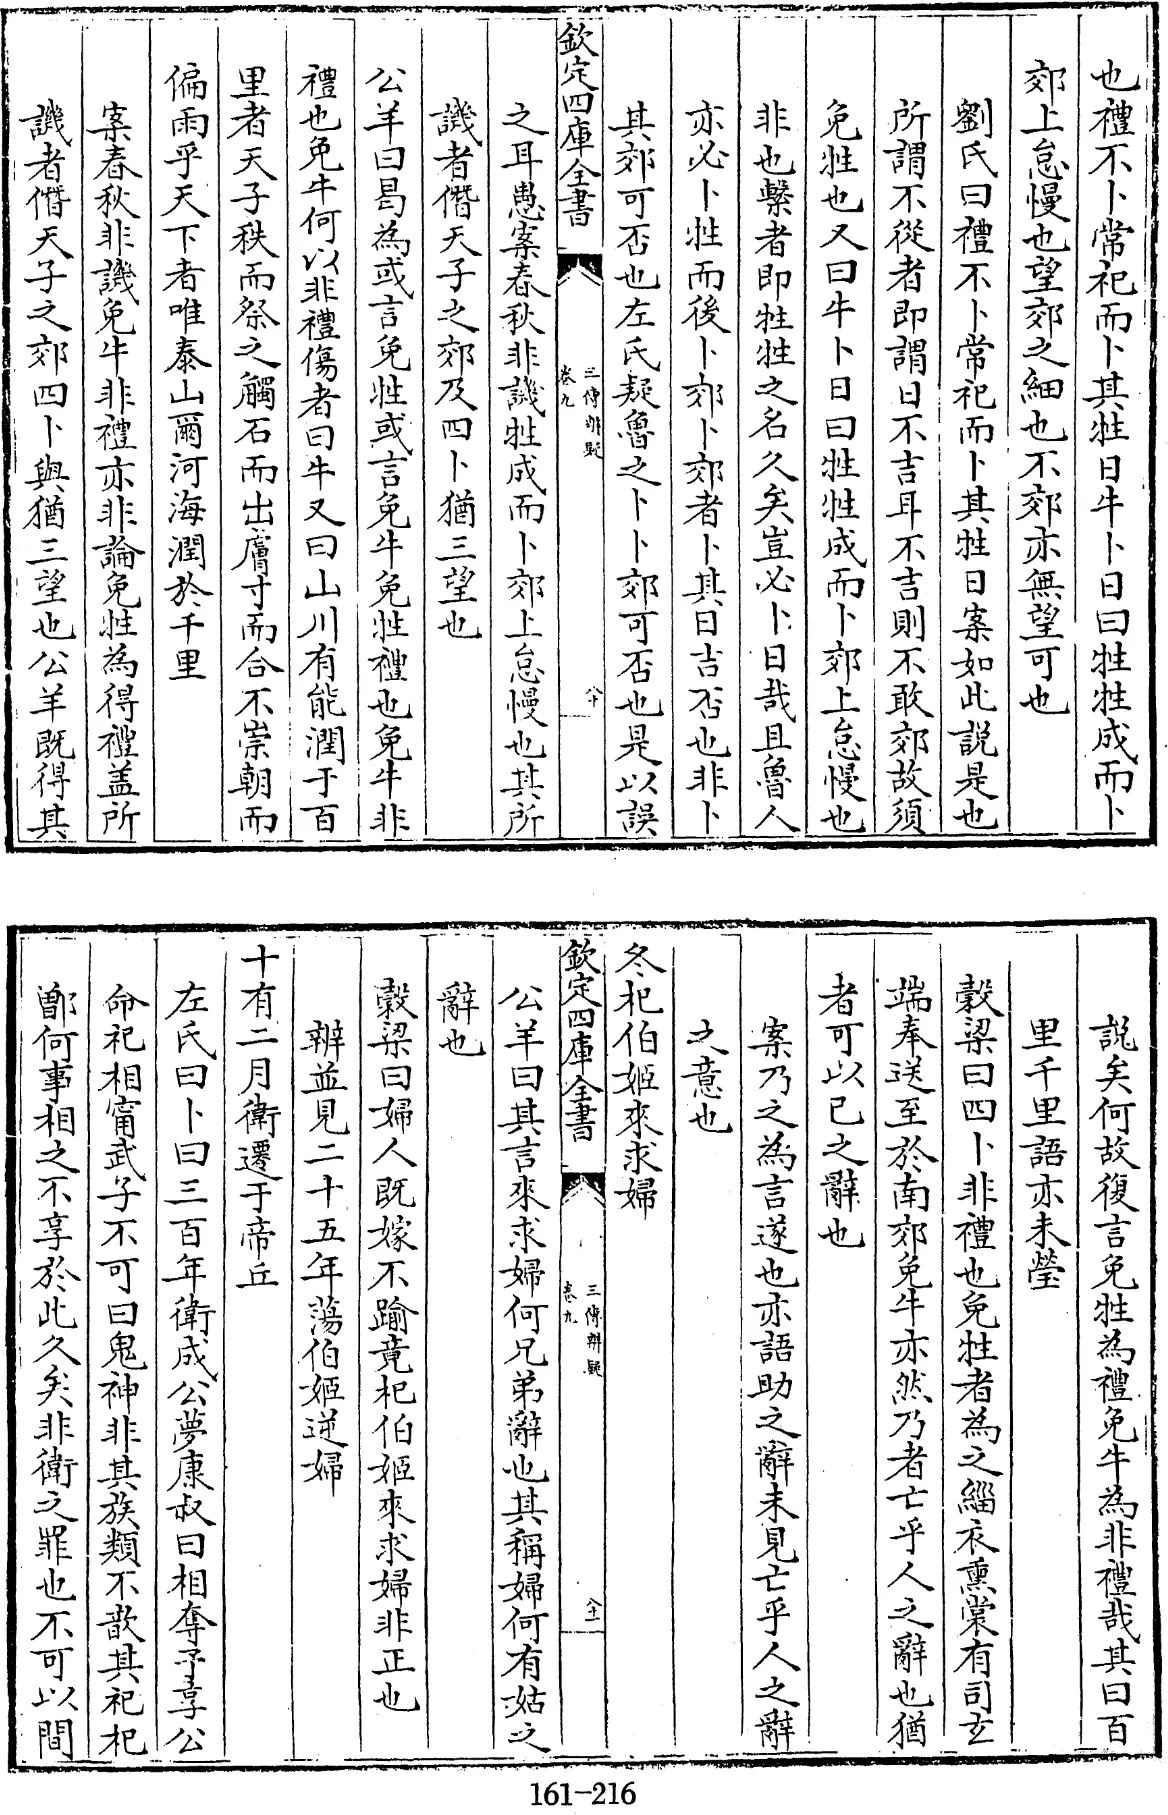 也禮不卜常祀而卜其牲日牛卜日曰牲牲成而卜
郊上怠慢也望郊之細也不郊亦無望可也
劉氏曰禮不卜常祀而卜其牲日案如此説是也
所謂不從者即謂日不吉耳不吉則不敢郊故須
免牲也又曰牛卜日曰牲牲成而卜郊上怠慢也
非也繫者即牲牲之名久矣豈必卜日哉且魯人
亦必卜牲而後卜郊卜郊者卜其日吉否也非卜
其郊可否也左氏疑魯之卜卜郊可否也是以誤
欽定四庫全書
三傳辨疑
卷九
八十
之耳愚案春秋非譏牲成而卜郊上怠慢也其所
譏者僭天子之郊及四卜猶三望也
公羊曰曷為或言免牲或言免牛免牲禮也免牛非
禮也免牛何以非禮傷者曰牛又曰山川有能潤于百
里者天子秩而祭之觸石而出膚寸而合不崇朝而
偏雨乎天下者唯泰山爾河海潤於千里
案春秋非譏免牛非禮亦非論免牲為得禮盖所
譏者僭天子之郊四卜與猶三望也公羊既得其
説矣何故復言免牲為禮免牛為非禮哉其曰百
里千里語亦未瑩
穀梁曰四卜非禮也免牲者為之緇衣熏裳有司玄
端奉送至於南郊免牛亦然乃者亡乎人之辭也猶
者可以已之辭也
案乃之為言遂也亦語助之辭未見亡乎人之辭
之意也
冬杞伯姬來求婦
欽定四庫全書
三傳辨疑
卷九
八十一
公羊曰其言來求婦何兄弟辭也其稱婦何有姑之
辭也
穀梁曰婦人既嫁不踰竟杞伯姬來求婦非正也
辨並見二十五年蕩伯姬逆婦
十有二月衛遷于帝丘
左氏曰卜曰三百年衛成公夢康叔曰相奪予享公
命祀相甯武子不可曰鬼神非其族類不歆其祀杞
鄫何事相之不享於此久矣非衛之罪也不可以間
161-216